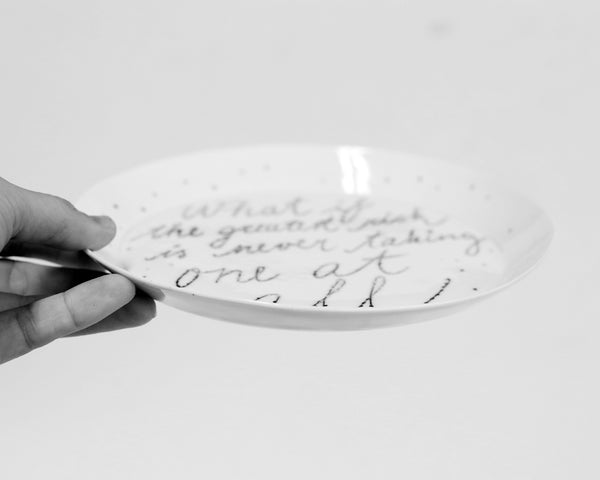 What if
the greatest risk
is never taking
one at
all!